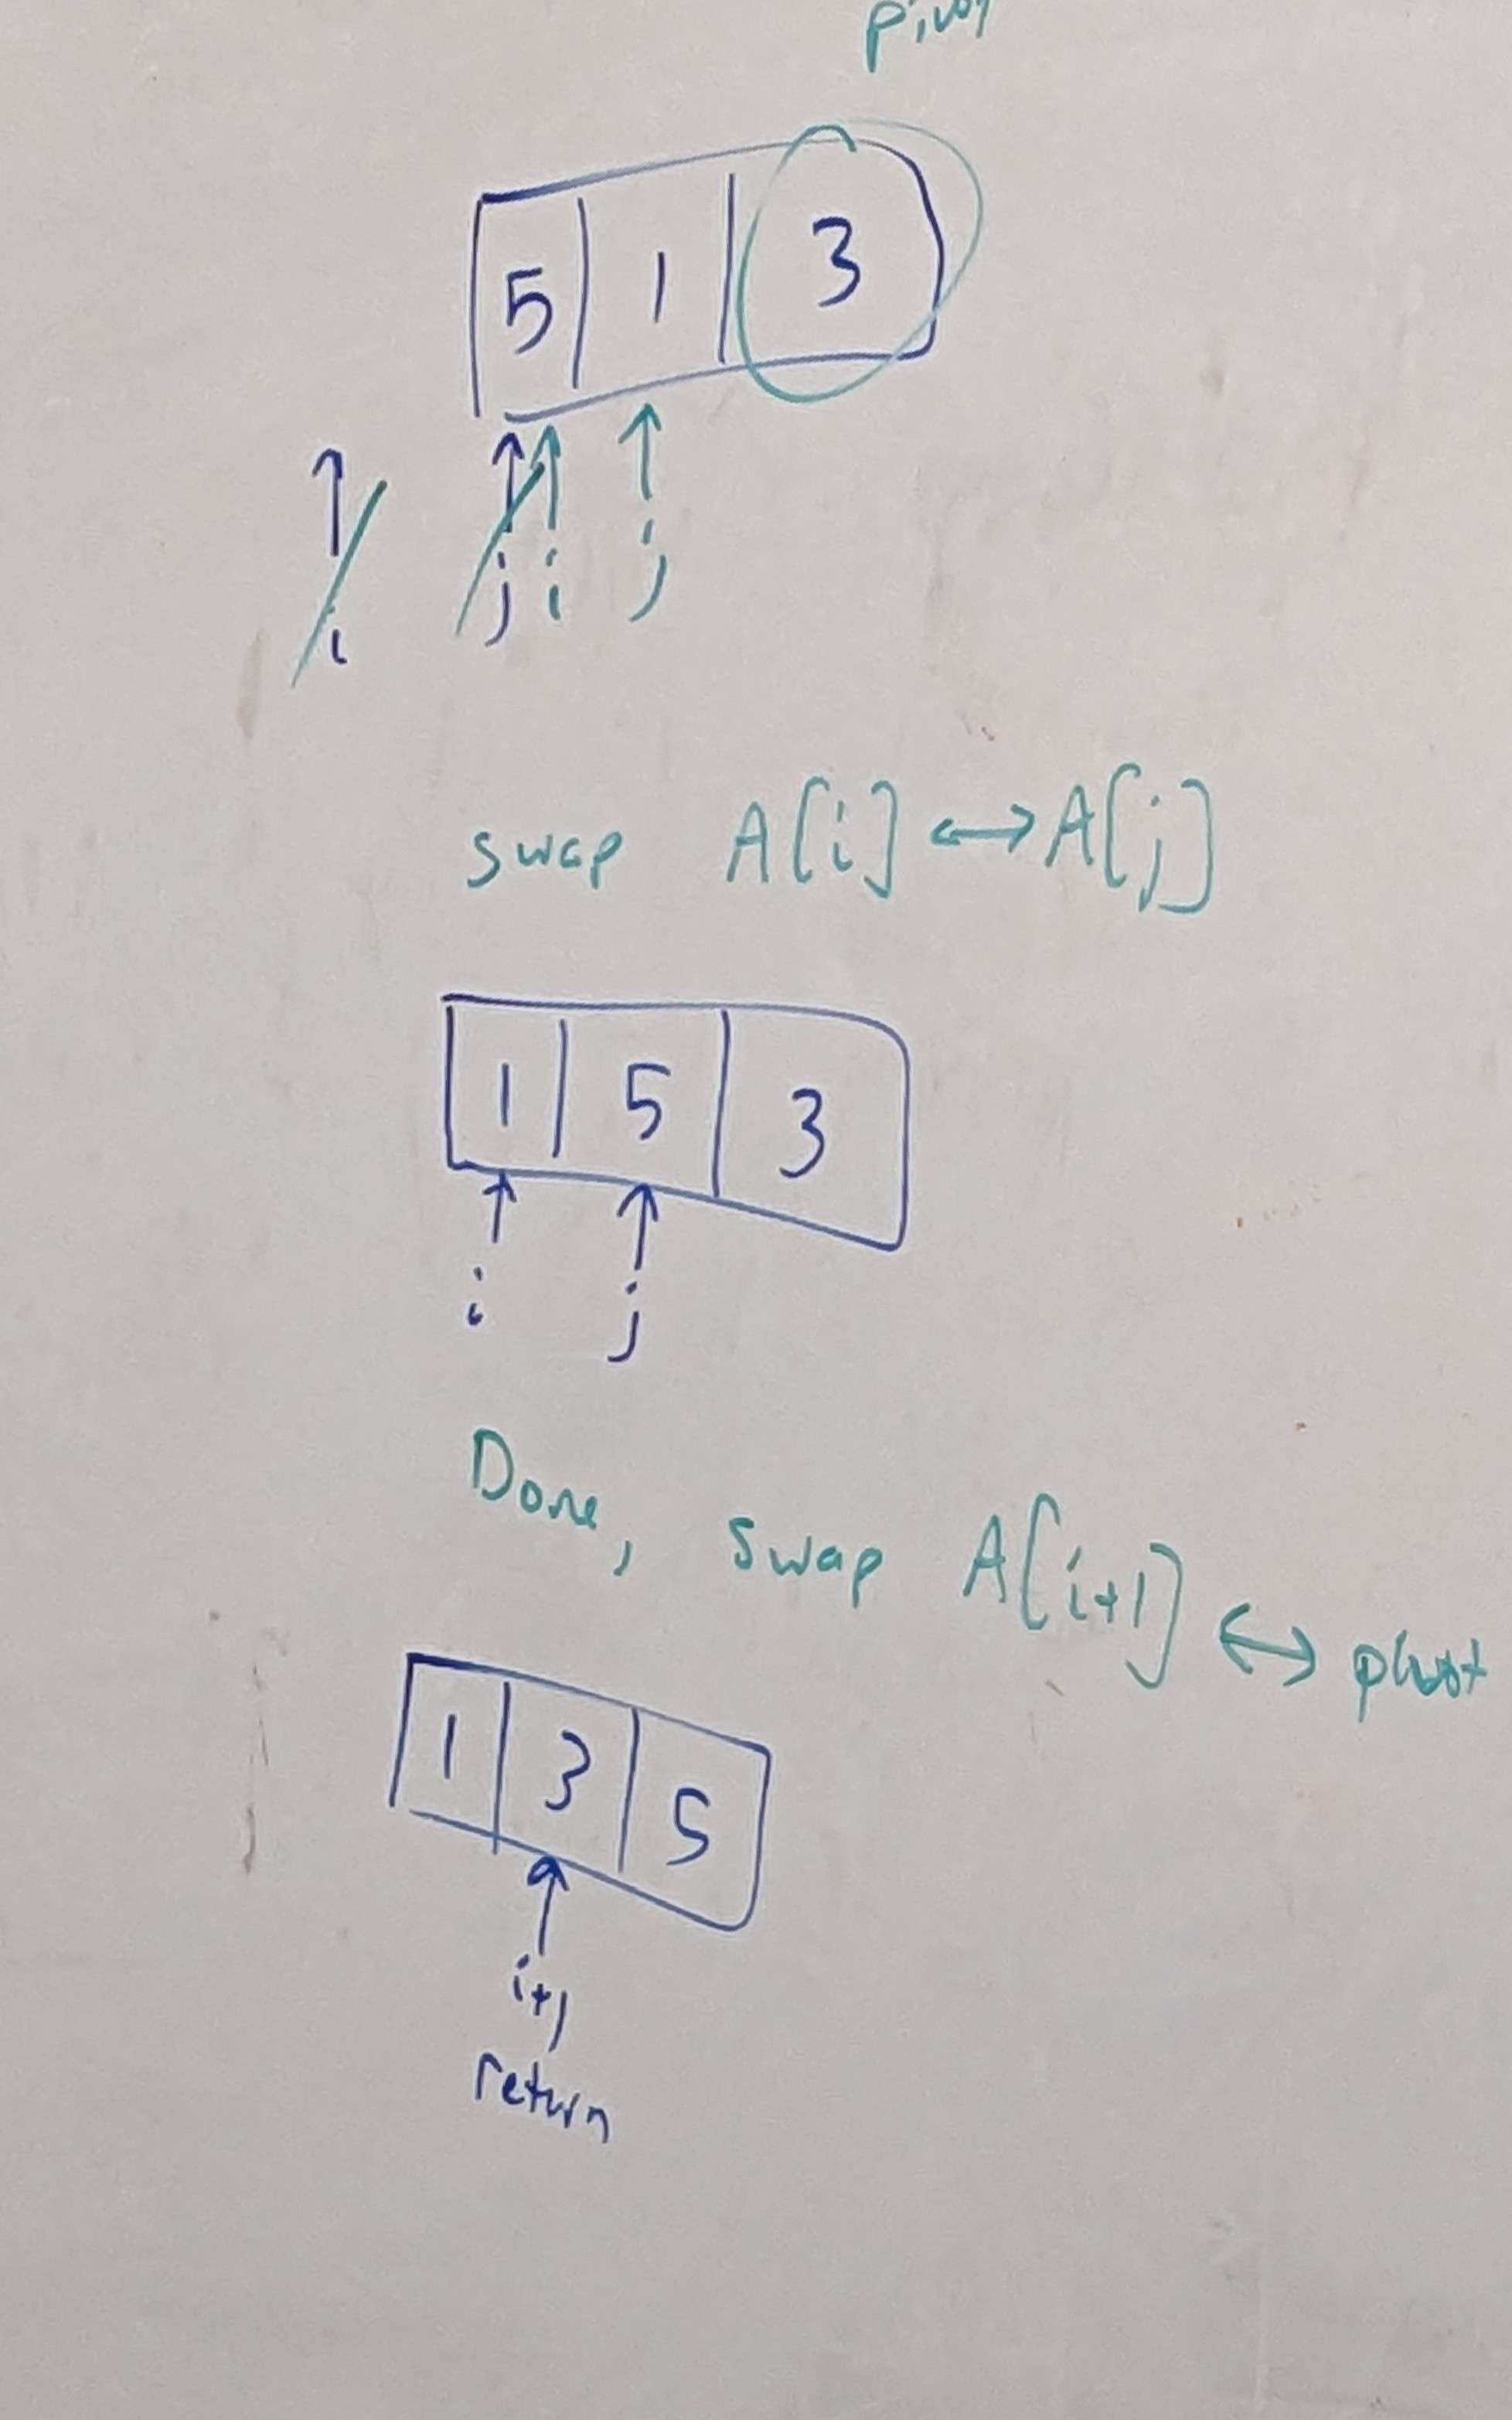 pivot
5 1 3
i j i j
swap A[i] ↔ A[j]
1 5 3
i j
Done, swap A[i+1] ↔ pivot
1 3 5
i+1
return